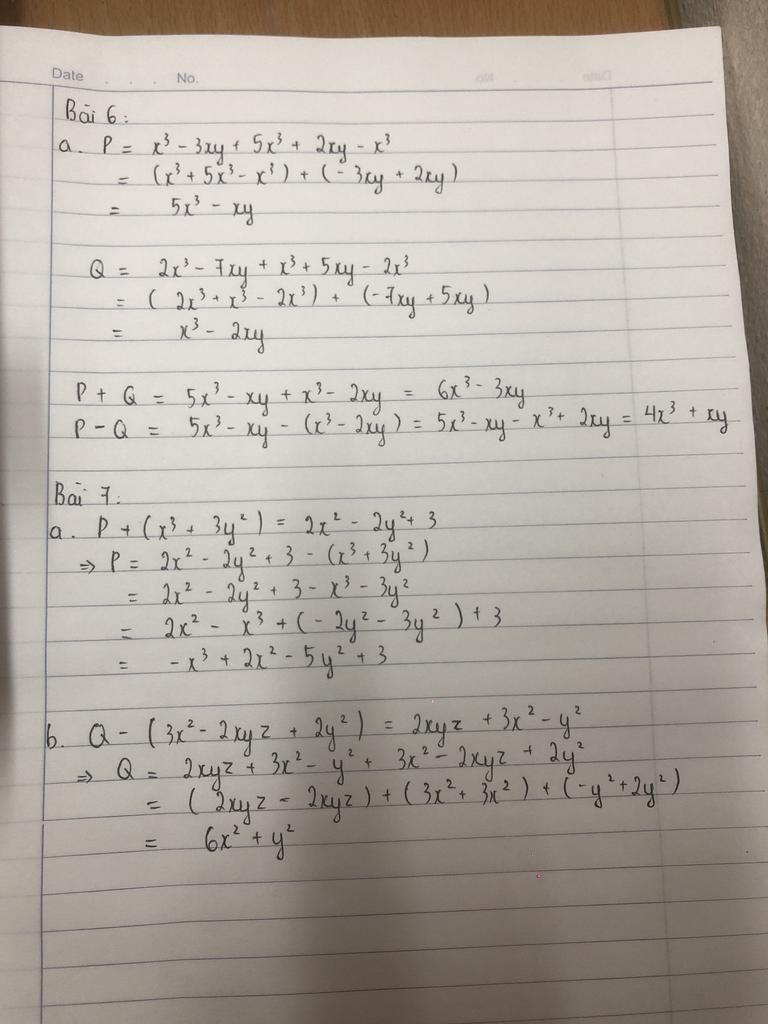 Date . . . No.
Bài 6:
a. P = x³ - 3xy + 5x³ + 2xy - x³
= (x³ + 5x³ - x³) + (-3xy + 2xy)
= 5x³ - xy
Q = 2x³ - 7xy + x³ + 5xy - 2x³
= (2x³ + x³ - 2x³) + (-7xy + 5xy)
= x³ - 2xy
P + Q = 5x³ - xy + x³ - 2xy = 6x³ - 3xy
P - Q = 5x³ - xy - (x³ - 2xy) = 5x³ - xy - x³ + 2xy = 4x³ + xy
Bài 7:
a. P + (x³ + 3y²) = 2x² - 2y² + 3
⇒ P = 2x² - 2y² + 3 - (x³ + 3y²)
= 2x² - 2y² + 3 - x³ - 3y²
= 2x² - x³ + (-2y² - 3y²) + 3
= -x³ + 2x² - 5y² + 3
b. Q - (3x² - 2xyz + 2y²) = 2xyz + 3x² - y²
⇒ Q = 2xyz + 3x² - y² + 3x² - 2xyz + 2y²
= (2xyz - 2xyz) + (3x² + 3x²) + (-y² + 2y²)
= 6x² + y²